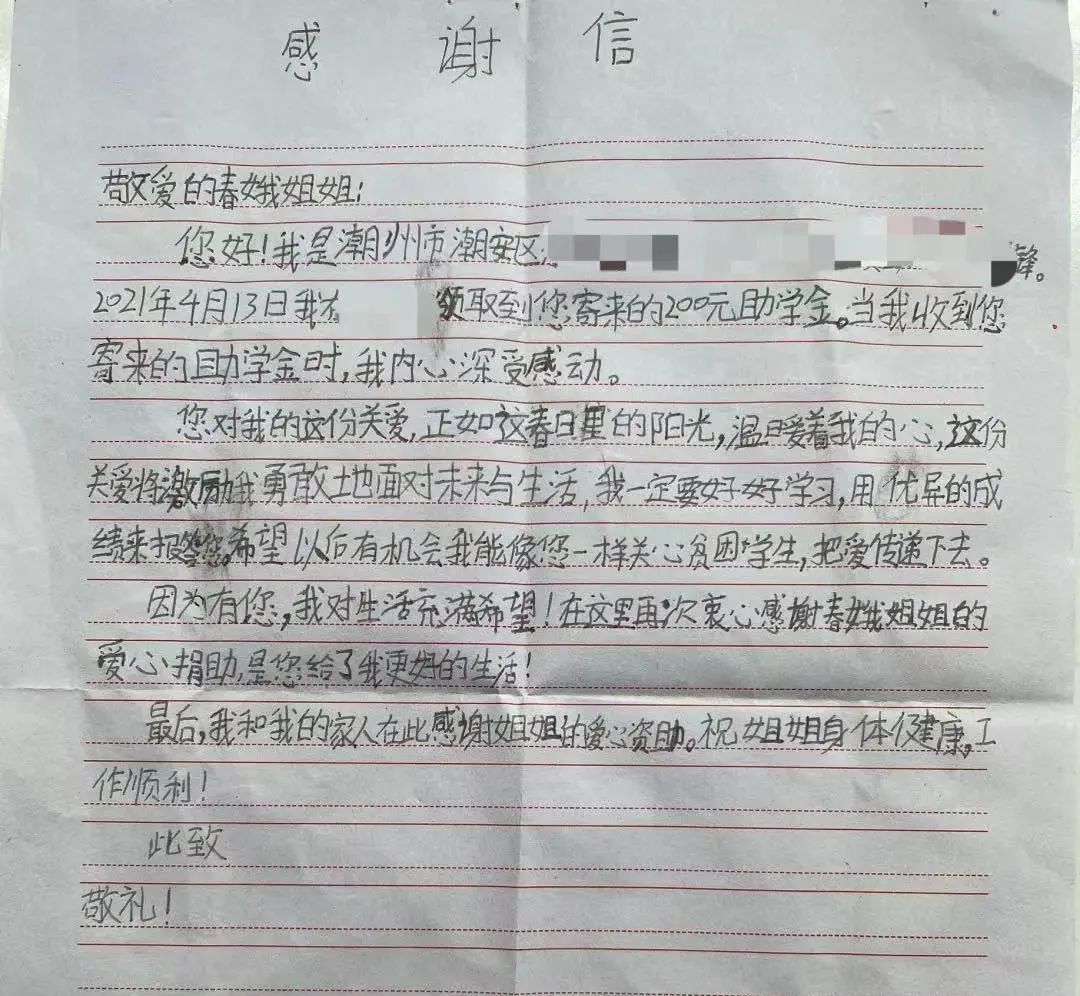 感谢信
敬爱的春娥姐姐:
您好!我是潮州市潮安区 锋。
2021年4月13日我在 领取到您寄来的200元助学金。当我收到您
寄来的助学金时,我内心深受感动。
您对我的这份关爱,正如这春日里的阳光,温暖着我的心,这份
关爱将激励我勇敢地面对未来与生活,我一定要好好学习,用优异的成
绩来报答您。希望以后有机会我能像您一样关心贫困学生,把爱传递下去。
因为有您,我对生活充满希望!在这里再次衷心感谢春娥姐姐的
爱心捐助,是您给了我更好的生活!
最后,我和我的家人在此感谢姐姐的爱心资助。祝姐姐身体健康,工
作顺利!
此致
敬礼!